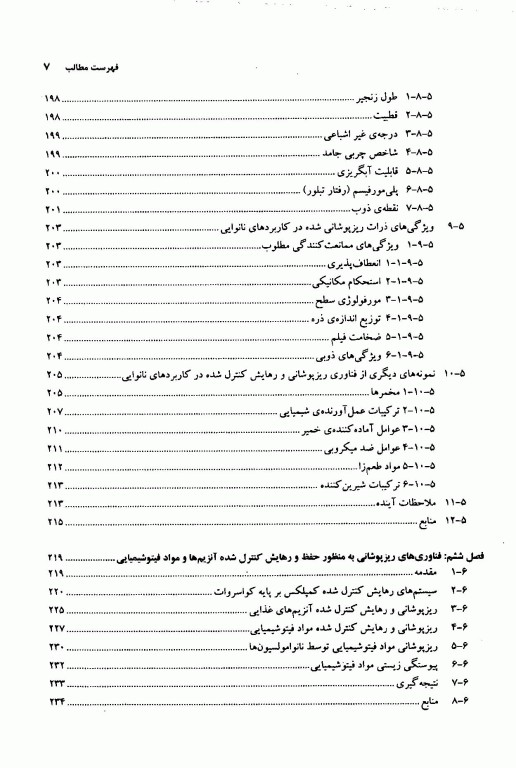 فهرست مطالب ۷
۵-۸-۱ طول زنجیر ۱۹۸
۵-۸-۲ قطبیت ۱۹۸
۵-۸-۳ درجه‌ی غیر اشباعی ۱۹۹
۵-۸-۴ شاخص چربی جامد ۱۹۹
۵-۸-۵ قابلیت آبگریزی ۲۰۰
۵-۸-۶ پلی‌مورفیسم (رفتار تبلور) ۲۰۰
۵-۸-۷ نقطه‌ی ذوب ۲۰۱
۵-۹ ویژگی‌های ذرات ریزپوشانی شده در کاربردهای نانوایی ۲۰۳
۵-۹-۱ ویژگی‌های ممانعت‌کنندگی مطلوب ۲۰۳
۵-۹-۱-۱ انعطاف‌پذیری ۲۰۳
۵-۹-۱-۲ استحکام مکانیکی ۲۰۳
۵-۹-۱-۳ مورفولوژی سطح ۲۰۴
۵-۹-۱-۴ توزیع اندازه‌ی ذره ۲۰۴
۵-۹-۱-۵ ضخامت فیلم ۲۰۴
۵-۹-۱-۶ ویژگی‌های ذوبی ۲۰۴
۵-۱۰ نمونه‌های دیگری از فناوری ریزپوشانی و رهایش کنترل شده در کاربردهای نانوایی ۲۰۵
۵-۱۰-۱ مخمرها ۲۰۵
۵-۱۰-۲ ترکیبات عمل‌آورنده‌ی شیمیایی ۲۰۷
۵-۱۰-۳ عوامل آماده‌کننده‌ی خمیر ۲۱۰
۵-۱۰-۴ عوامل ضد میکروبی ۲۱۱
۵-۱۰-۵ مواد طعم‌زا ۲۱۲
۵-۱۰-۶ ترکیبات شیرین‌کننده ۲۱۳
۵-۱۱ ملاحظات آینده ۲۱۳
۵-۱۲ منابع ۲۱۵
فصل ششم: فناوری‌های ریزپوشانی به منظور حفظ و رهایش کنترل شده آنزیم‌ها و مواد فیتوشیمیایی ۲۱۹
۶-۱ مقدمه ۲۱۹
۶-۲ سیستم‌های رهایش کنترل شده کمپلکس بر پایه کواسروات ۲۲۰
۶-۳ ریزپوشانی و رهایش کنترل شده آنزیم‌های غذایی ۲۲۵
۶-۴ ریزپوشانی و رهایش کنترل شده مواد فیتوشیمیایی ۲۲۷
۶-۵ ریزپوشانی مواد فیتوشیمیایی توسط نانوامولسیون‌ها ۲۳۰
۶-۶ پیوستگی زیستی مواد فیتوشیمیایی ۲۳۲
۶-۷ نتیجه‌گیری ۲۳۳
۶-۸ منابع ۲۳۴